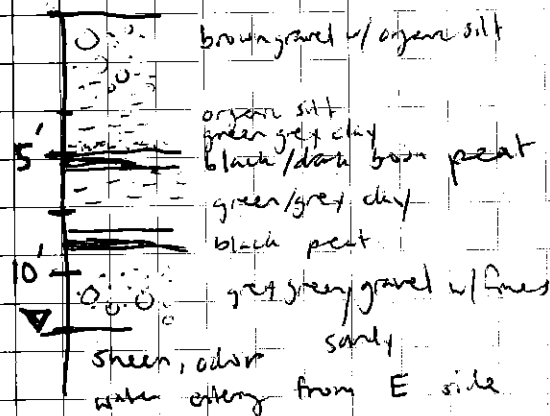 brown gravel w/ organic silt
organic silt
green grey clay
5'
black/dark brown peat
green/grey clay
black peat
10'
grey green gravel w/ fines
sandy
sheen, odor
water entering from E side